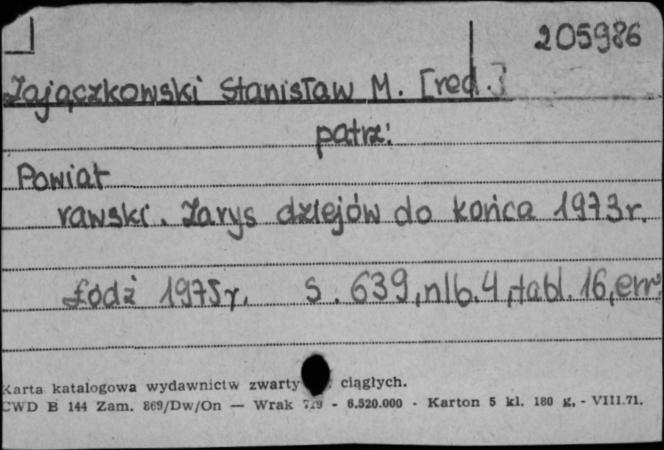 205986
Zajączkowski Stanisław M. [red.]
patrz:
Powiat
rawski. Zarys dziejów do końca 1973r.
Łódź 1975r. s. 639, nlb. 4, tabl. 16, err.
Karta katalogowa wydawnictw zwarty ciągłych.
CWD B 144 Zam. 869/Dw/On — Wrak - 6.520.000 - Karton 5 kl. 180 g. - VIII.71.